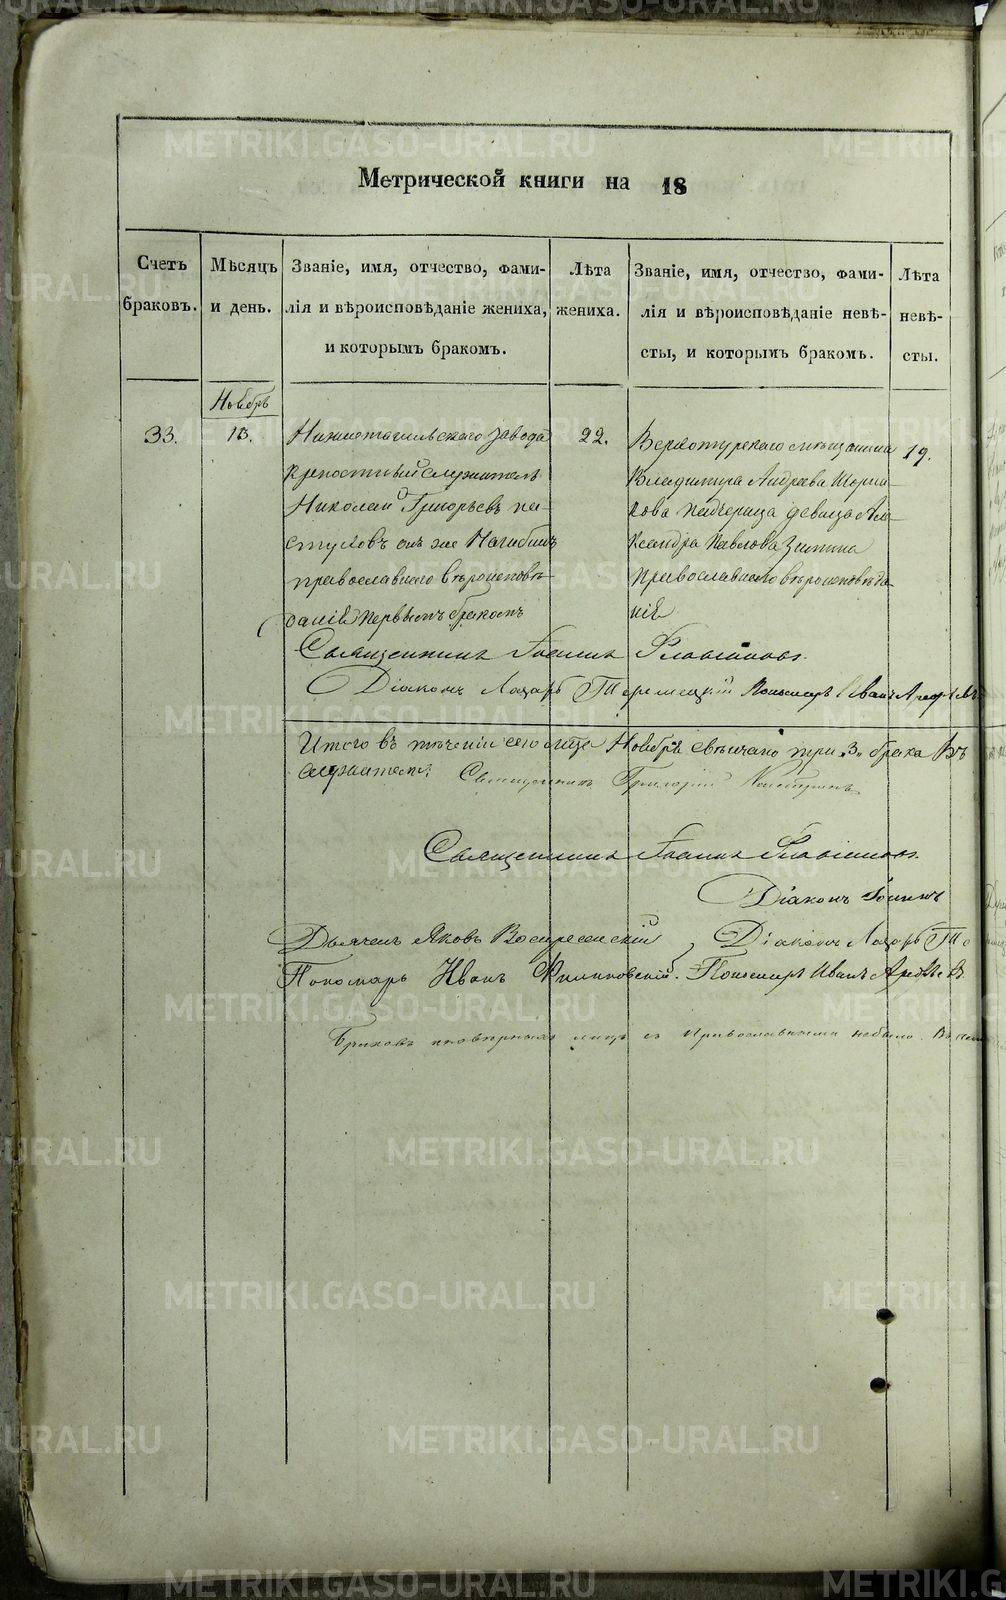 Метрической книги на 18
Счетъ браковъ.
Мѣсяцъ и день.
Званіе, имя, отчество, фами-
лія и вѣроисповѣданіе жениха,
и которымъ бракомъ.
Лѣта
жениха.
Званіе, имя, отчество, фами-
лія и вѣроисповѣданіе невѣ-
сты, и которымъ бракомъ.
Лѣта
невѣ-
сты.
Ноябрь
33.
13.
Нижнетагильскаго завода
крепостный служитель
Николай Григорьевъ па-
стуховъ онъ же Нагибинъ
православнаго вѣроисповѣ-
данія первымъ бракомъ
22.
Верхотурскаго мѣщанина
Владимира Андреева
кова падчерица девица Але-
ксандра Павлова Зимина
православнаго вѣроисповѣда-
нія
19.
Священникъ Іоаннъ Флавіановъ.
Діаконъ Лазарь Пономарь Иванъ Арефьевъ
Итого въ теченіи сего Ноябрѣ свѣнчано три „3„ брака Въ
Священникъ Григорій
Священникъ Іоаннъ Флавіановъ.
Діаконъ Іоаннъ
Дьячекъ Яковъ Воскресенскій
Діаконъ Лазарь
Пономарь Иванъ Филиповскій. Пономарь Иванъ Арефьевъ.
Браковъ иновѣрныхъ лицъ съ Православными небыло.
METRIKI.GASO-URAL.RU